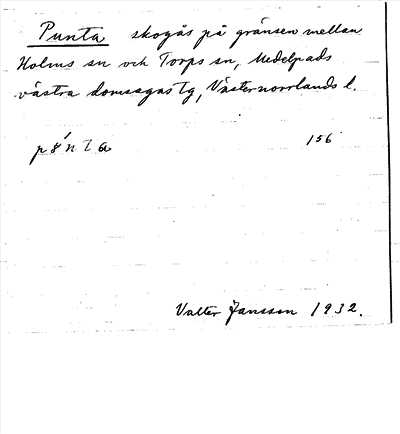 Punta skogås på gränsen mellan
Holms sn och Torps sn, Medelpads
västra domsagas tg, Västernorrlands l.
156
Valter Jansson 1932.